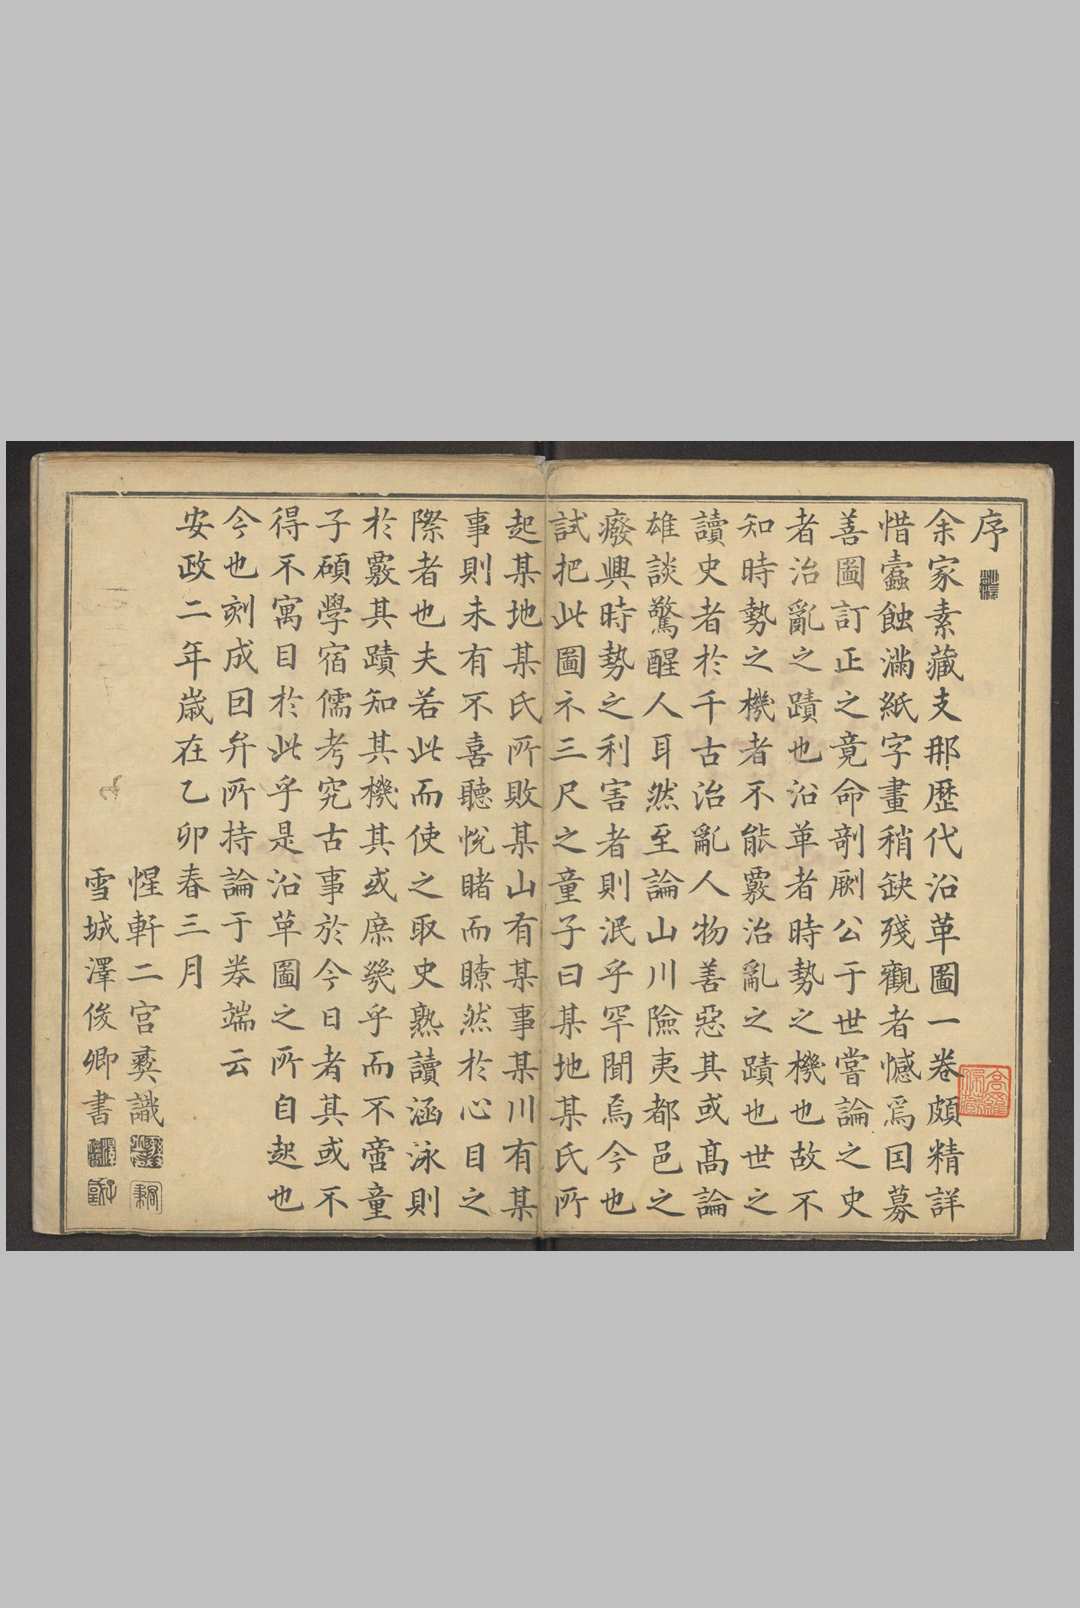 序
余家素藏支那歷代沿革圖一卷頗精詳
惜蠧蝕滿紙字畫稍缺殘觀者憾焉因募
善圖訂正之竟命剞劂公于世嘗論之史
者治亂之蹟也沿革者時勢之機也故不
知時勢之機者不能覈治亂之蹟也世之
讀史者於千古治亂人物善惡其或高論
雄談驚醒人耳然至論山川險夷都邑之
癈興時勢之利害者則泯乎罕聞焉今也
試把此圖示三尺之童子曰某地某氏所
起某地某氏所敗某山有某事某川有某
事則未有不喜聽悅睹而瞭然於心目之
際者也夫若此而使之取史熟讀涵泳則
於覈其蹟知其機其或庶幾乎而不啻童
子碩學宿儒考究古事於今日者其或不
得不寓目於此乎是沿革圖之所自起也
今也刻成因弁所持論于卷端云
安政二年歲在乙卯春三月
惺軒二宮彜識
雪城澤俊卿書